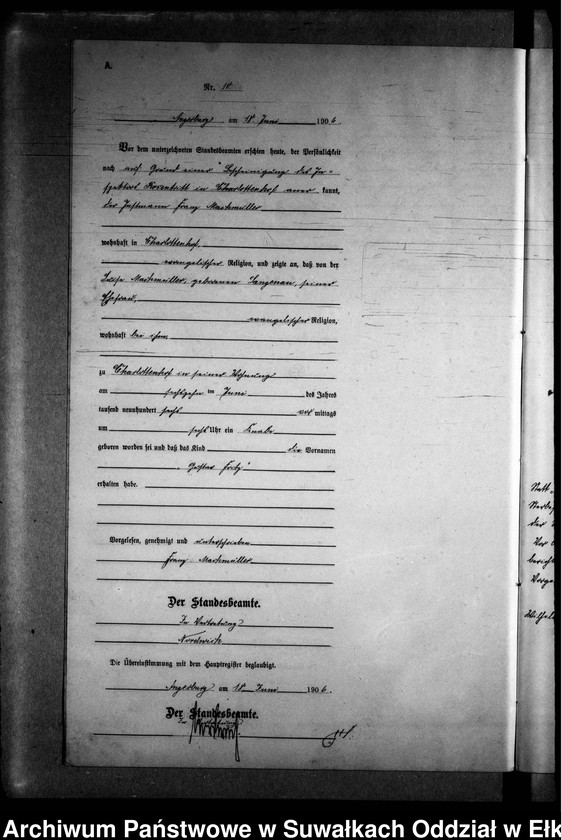 A.
Nr. 18
Angerburg am 18 Juni 1906.
Vor dem unterzeichneten Standesbeamten erschien heute, der Persönlichkeit
nach auf Grund einer Bescheinigung des In=
spektors in Charlottenhof aner kannt,
der Instmann Franz
wohnhaft in Charlottenhof,
evangelischer Religion, und zeigte an, daß von der
Luise geborenen Langenau, seiner
Ehefrau,
evangelischer Religion,
wohnhaft bei ihm
zu Charlottenhof in seiner Wohnung
am sechzehn ten Juni des Jahres
tausend neunhundert sechs vor mittags
um sechs Uhr ein Knabe
geboren worden sei und daß das Kind die Vornamen
Gustav Fritz
erhalten habe.
Vorgelesen, genehmigt und unterschrieben
Franz
Der Standesbeamte.
In Vertretung
Die Übereinstimmung mit dem Hauptregister beglaubigt.
Angerburg am 18 Juni 1906.
Der Standesbeamte.
Archiwum Państwowe w Suwałkach Oddział w Ełk